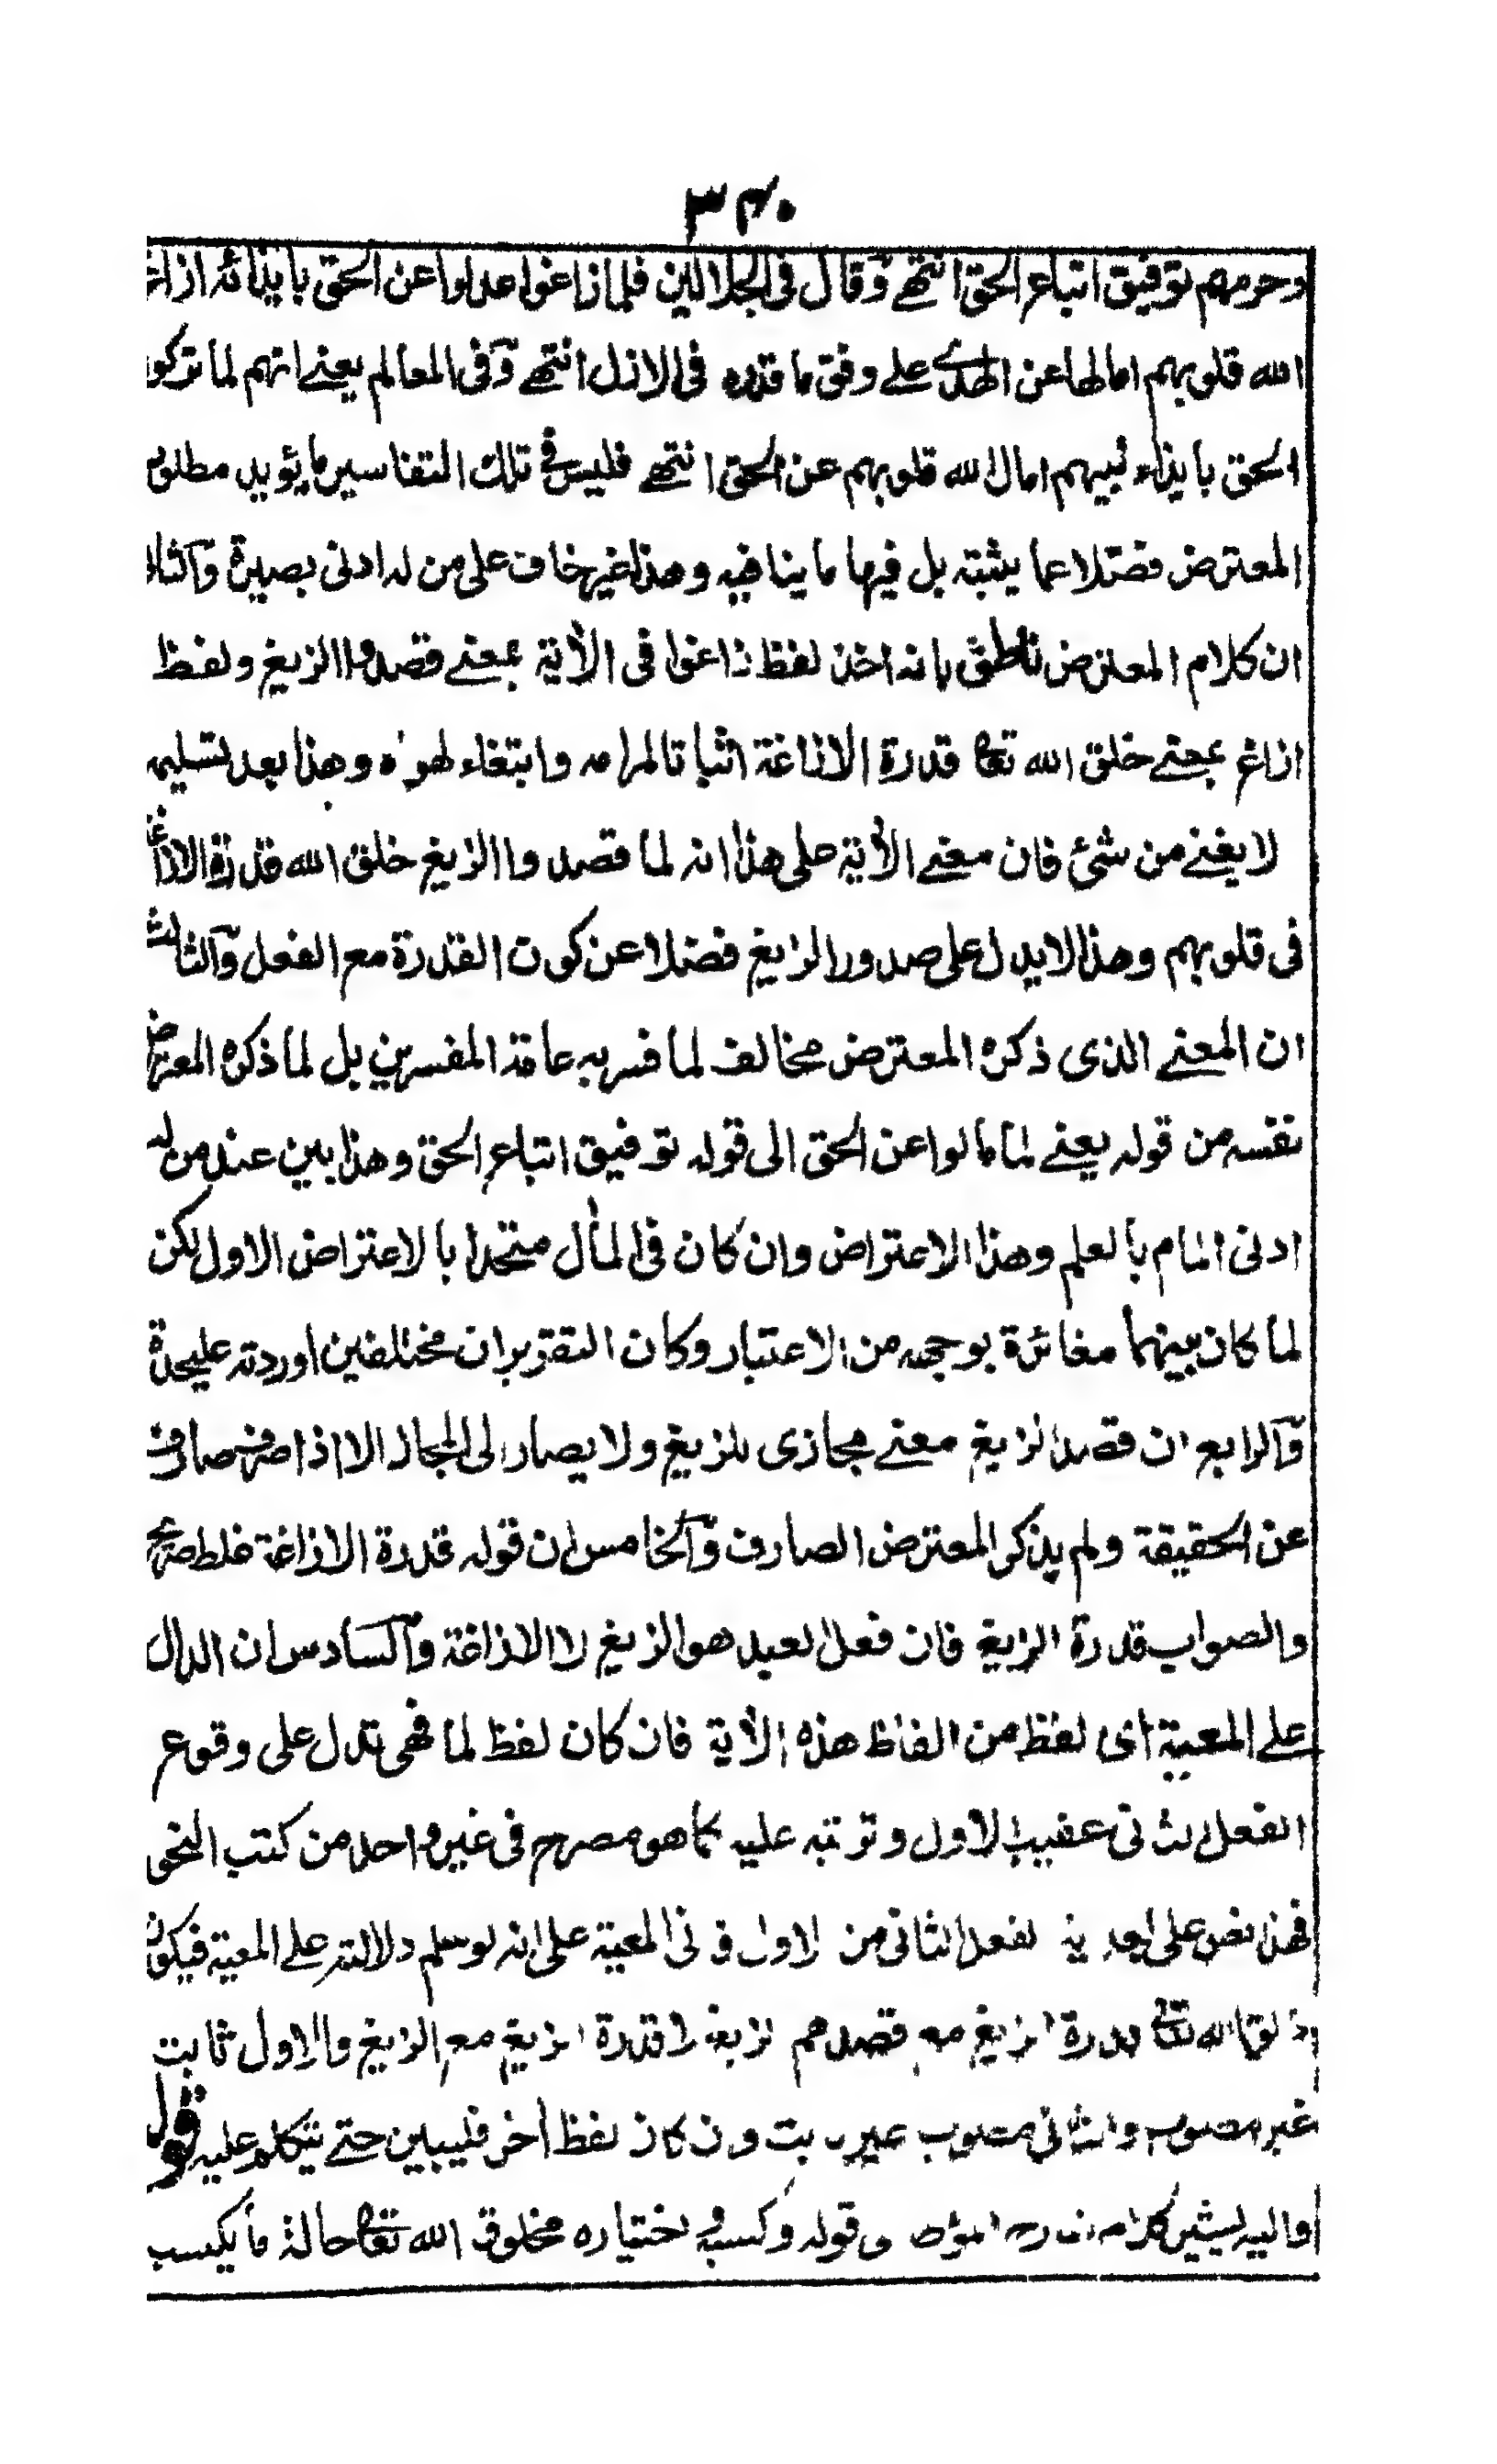 ٣٤٠
وحرمهم توفيق اتباع الحق انتهے وقال فى الجلالين فلما زاغوا عدلوا عن الحق بايذائه ازاغ
الله قلوبهم امالها عن الهدى على وفق ما قدره فى الازل انتهے وفى المعالم يعنے انهم لما تركوا
الحق بايذاء نبيهم امال الله قلوبهم عن الحق انتهے فليس فے تلك التفاسير ما يؤيد مطلوب
المعترض فضلا عما يثبته بل فيها ما ينافيه وهذا غير خاف على من له ادنى بصيرة والثانى
ان كلام المعترض ناطق بانه اخذ لفظ زاغوا فى الأية بمعنے قصدوا الزيغ ولفظ
ازاغ بمعنے خلق الله تعالى قدرة الازاغة اثباتا لمرامه وابتغاء لهواه وهذا بعد تسليمه
لا يغنے من شئ فان معنے الأية على هذا انه لما قصدوا الزيغ خلق الله قدرة الازاغة
فى قلوبهم وهذا لا يدل على صدور الزيغ فضلا عن كون القدرة مع الفعل والثالث
ان المعنے الذى ذكره المعترض مخالف لما فسر به عامة المفسرين بل لما ذكره المعترض
نفسه من قوله يعنے لما مالوا عن الحق الى قوله توفيق اتباع الحق وهذا بين عند من له
ادنى المام بالعلم وهذا الاعتراض وان كان فى المأل متحدا بالاعتراض الاول لكن
لما كان بينهما مغائرة بوجه من الاعتبار وكان التقريران مختلفين اوردته عليحدة
والرابع ان قصد الزيغ معنے مجازى للزيغ ولا يصار الى المجاز الا اذا صرف صارف
عن الحقيقة ولم يذكر المعترض الصارف والخامس ان قوله قدرة الازاغة غلط صريح
والصواب قدرة الزيغ فان فعل العبد هو الزيغ لا الازاغة والسادس ان الدال
على المعية اى لفظ من الفاظ هذه الأية فان كان لفظ لما فهى تدل على وقوع
الفعل الثانى عقيب الاول وترتبه عليه كما هو مصرح فى غير واحد من كتب النحو
فهذا نص على بعدية الفعل الثانى من الاول فى نفى المعية على انه لو سلم دلالته على المعية فيكون
خلق الله تعالى قدرة الزيغ مع قصدهم الزيغ لا قدرة الزيغ مع الزيغ والاول ثابت
غير مطلوب والثانى مطلوب غير ثابت وان كان لفظ أخر فليبين حتے يتكلم عليه قوله
واليه يشير كلام قوله وكسبه باختياره مخلوق الله تعالى حالة ما يكسب